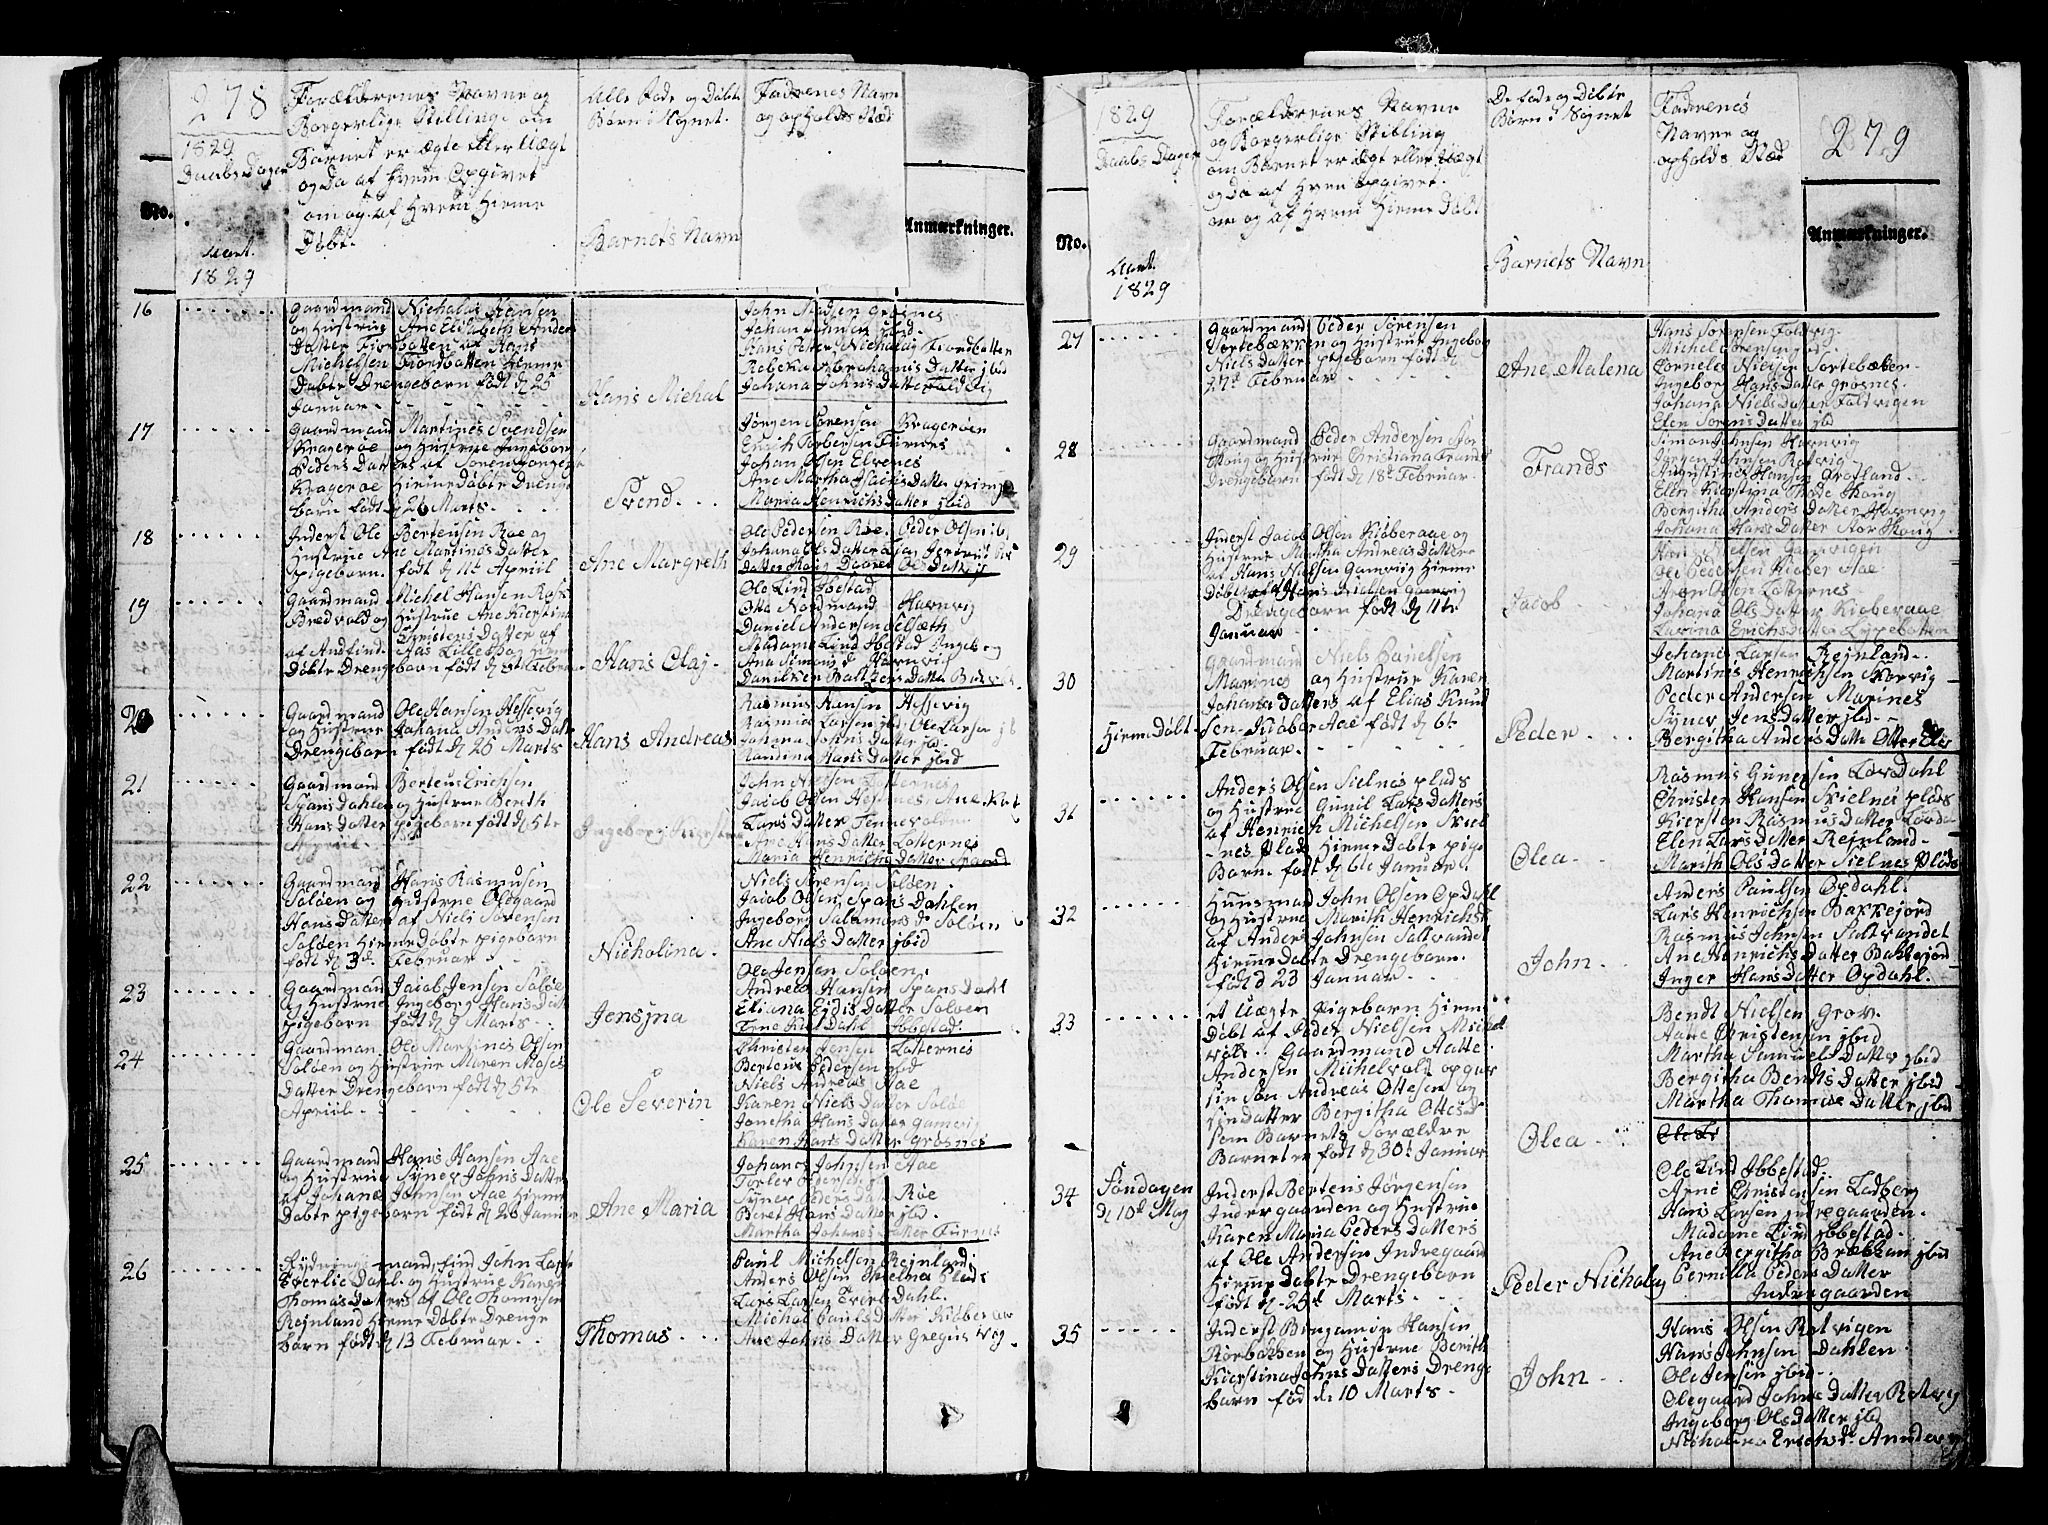 278
1829
Daabs Dager
Mart.
1829
No.
Forælderenes Navne og
Borgerlige Stilling om
Barnet er ægte eller Uægt
og Da af Hvem Opgivet
om og af Hvem Hieme
Døbt.
Alle Føde og Døbte
Børn i Sognet.
Barnets Navn
Fadrenes Navn
og opholds Stæd
Anmærkninger.
16
Gaardmand Nicholai Hansen
og Hustrue Ane Elisabeth Anders
Datter Fiordbotten af Hans
Michelsen Fiordbotten Hieme
Døbte Drengebarn født d 25
Januar
Hans Michal
John Madsen Grosnes
Johan Johnsen jbid.
Hans Peter Nicholay Fiordbotter
Rebeka Abrahams Datter jbid
Johana Johns Datter Foldvig
17
Gaardmand Martines Svendsen
Kragerøe og Hustrue Ingebor
Peders Datters af Søren
Kragerøe Hieme Døbte Drenge
barn født d 26 Marts.
Svend
Jørgen Sørensen Kragerøen
Erich Torbersen Furnes
Johan Olsen Elvenes
Ane Martha Isachs Datter
Maria Henrichs Datter jbid
18
Inderst Ole Bertensen Røe og
Hustrue Ane Martines Datter
pigebarn født d 11te Apriil
Ane Margreth
Ole Pedersen Røe Peder Olsen ib
Johana Ols Datter
Datter Ols Datter jb
19
Gaardmand Michel Hansen Ross
Bredvold og Hustrue Ane Kierstina
Christens Datter af
af Andfind Aas Lillebho og
Døbte Drengebarn født d 8t Februar
Hans Olay
Ole Lind Ibestad
Otto Nordmand Havnvig
Daniel Andersen Selsæth
Madame Lind Ibestad Ingeborg
Ane Simons d Havnvig
Danikken Baltzers Datter
20
Gaardmand Ole Hansen Hessevig
og Hustrue Johana Anders Datter
Drengebarn født d 26 Marts
Hans Andreas
Rasmus Hansen Hessevig
Rasmus Larsen jbd. Ole Larsen jb
Johana Johns Datter jbd.
Nondina Hans Datter jbid
21
Gaardmand Berteus Erichsen
Spans Dahlen og Hustrue Bereth
Hans Datter pigebarn født d 5te
Apriil
Ingeborg Kierstina
John Nielsen Lotternes
Jacob Olsen Hessnes Ane Kat
Lars Datter Tennevolden
Ane Hans Datter Lotternes
Maria Henrichs Datter Spansd
22
Gaardmand Hans Rasmusen
Soløen og Hustrue Olegaard
Hans Datter af Niels Sørensen
Soløen Hieme Døbte pigebarn
født d 3d. Februar
Nicholina
Niels Sørensen Soløen
Jacob Olsen Spans Dahlen
Ingeborg Salamons d Soløen
Ane Niels Datter jbid
23
Gaardmand Jacob Jensen Soløe
og Hustrue Ingeborg Hans Datt
pigebarn født d 9 Marts
Jensjna
Ole Jensen Soløen
Andreas Hansen Spans Dahl
Eliana Eidis Datter Soløen
Ibbestad
24
Gaardman Ole Martines Olsen
Soløen og Hustrue Maren Moses
Datter Drengebarn født d 5te
Apriil
Ole Severin
Christen Jensen Lotternes
Berteus Pedersen jbid
Niels Andreas Aae
Karen Niels Datter Soløe
Jonetha Hans Datter Gamvig
Karen Hans Datter Grosnes
25
Gaardmand Hans Hansen Aae
og Hustrue Synev Johns Datter
af Johanes Johnsen Aae Hieme
Døbte pigebarn født d 26 Januar
Ane Maria
Johanes Johnsen Aae
Torlev Pedersen jb
Synev Peders Datt Røe
Beret Hans Datter jbid.
Martha Johanes Datter Furnes
26
Rydnings mand find John Lasse
Tverlie Dahl og Hustrue Karen
Thomas Datters af Ole Thomesen
Rejnland Hieme Døbte Drenge
barn født d 13 Februar
Thomas
Paul Michelsen Rejnland
Anders Olsen Skielnes Plads
Lars Larsen Tverl Dahl.
Michal Pauls Datter Kiøberaae
Ane Johns Datter Gregus vig
1829
Daabs Dager
No.
Mart.
1829
Forælderenes Navne
og Borgerlige Stilling
om Barnet er Ægt eller Uægt
og Da af Hvem opgivet.
om og af Hvem Hieme Døbt
De føde og Døbte
Børn i Sognet
Barnets Navn
Fadrenes
Navne og
opholds Stæd
279
Anmærkninger.
27
Gaardmand Peder Sørensen
Sortebækken og Hustrue Ingebor
Niels Datter pigebarn født d
27d Februar
Ane Malena
Hans Sørensen Foldvig
Michel Sørensen
Cornelius Nielsen Sortebæken
Ingebor Hans Datter Grosnes
Johana Niels Datter Foldvigen
Elen Sørens Datter jbid
28
Gaardmand Peder Andersen Stor
Skoug og Hustrue Christiana Frands
Drengebarn født d 18d Februar
Frands
Simon Johnsen Havnvig
Jørgen Johnsen Rotvig
Augustinus Hansen Grosland
Elen Kierstina Thode Skoug
Bergitha Anders Datter Havnvig
Johana Hans Datter Stor Skoug
29
Inderst Jacob Olsen Kiøberaae og
Hustrue Martha Andreas Datter
af Hans Nielsen Gamvig Hieme
Døbt af Hans Nielsen Gamvig
Drengebarn født d 11te
Januar
Jacob
Hans Nielsen Gamvigen
Ole Pedersen Kiøber Aae
Aron Olsen Lotternes
Johana Ols Datter Kiøberaae
Lavina Erichs Datter Lyngebotten
30
Hieme Døbt
Gaardmand Niels Danielsen
Marines og Hustrue Karen
Johana Datters af Elias Knud
sen Kiøber Aae født d 6t
Februar
Peder
Johanes Larsen Rejnland
Martinus Henrichsen Skorvig
Peder Andersen Marines
Synev Jens Datter jbid
Bergitha Anders Datte Otter
31
Anders Olsen Sielnes plads
og Hustrue Gunil Lars Datters
af Henrich Michelsen Skiel
nes Plads Hieme Døbte pige
Barn født d 6te Januar
Olea
Rasmus Gunersen Løvdahl
Christen Hansen Skielnes plads
Kiersten Rasmus Datter Løvda
Elen Lars Datter Rejnland
Marith Ols Datter Sielnes Plads
32
Huusmand John Olsen Opdahl
og Hustrue Marith Henrichs
af Anders Johnsen Saltvandet
Hieme Døbte Drengebarn
født d 23 Januar
John
Anders Paulsen Opdahl.
Lars Henrichsen Bakkejord
Rasmus Johnsen Saltvandet
Ane Henrichs Datter Bakkejord
Inger Hans Datter Opdahl.
33
et Uægte Pigebarn Hieme
Døbt af Peder Nielsen Michel
vold. Gaardmand Aatte
Andersen Michelvold opgav
sin Søn Andreas Ottesen og
sin Datter Bergitha Ottes d
som Barnets Forældre
Barnet er født d 30t Januar
Olea
Bendt Nielsen Grov
Aatte Christensen jbid
Martha Samuels Datter jbid
Bergitha Bendts Datter jbid
Martha Thomæ Datter jbid
34
Søndagen
d 10d May
Inderst Bertens Jørgensen
Indergaarden og Hustrue
Karen Maria Peders Datters
af Ole Andersen Indregaard
Hieme Døbte Drengebarn
født d 25d Marts
Peder Nicholay
Ole Lind Ibbestad.
Arne Christensen Ladberg
Hans Larsen Indregaarden.
Madame Lind Ibbestad
Ane Bergitha Brækkan jbid
Pernilla Peders Datter
Indregaarden
35
Inderst Benjamin Hansen
Rørbakken og Hustrue Berith
Kierstina Johns Datters Drenge
barn fød d 10 Marts
John
Hans Olsen Rotvigen
Hans Johnsen Dahlen
Ole Jensen jbid
Olegaard Johns Datter Rotvig
Ingeborg Ols Datter jbid
Nicholina Erichs d